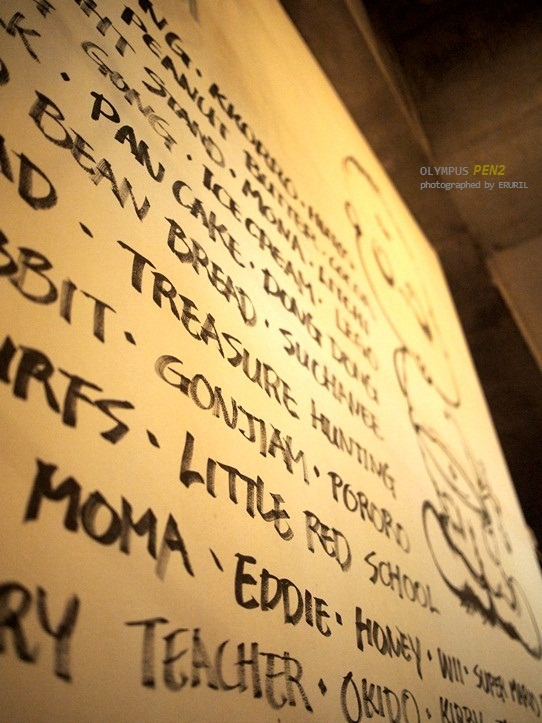 NG · KKOKKO ·
HT PEANUT BUTTER · COCOA
K · GONG · STAND · MONA · LITCHI
PAN CAKE · ICE CREAM · LEGO
BEAN BREAD · DUNG DUNG
AD · TREASURE HUNTING · SUCHANEE
BBIT · GONJIAM · PORORO
URFS · LITTLE RED SCHOOL
MOMA · EDDIE · HONEY · WII · SUPER MARIO
RY TEACHER · OKIDO · KIRBY
OLYMPUS PEN2
photographed by ERURIL